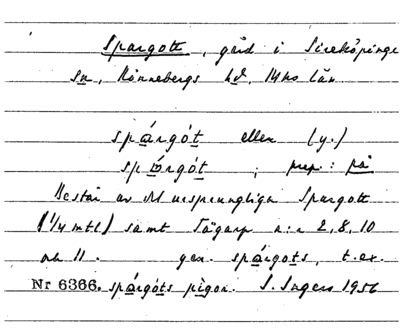 Spargott, gård i Sireköpinge
sn, Rönnebergs hd, Mhs län
spárgót eller (y.)
spórgót ; prep: på
Består av M ursprungliga Spargott
(1/4 mtl) samt Tågarp n:r 2, 8, 10
och 11. gen. spárgots, t.ex.
Nr 6366. spárgóts pigor. S. Ingers 1956